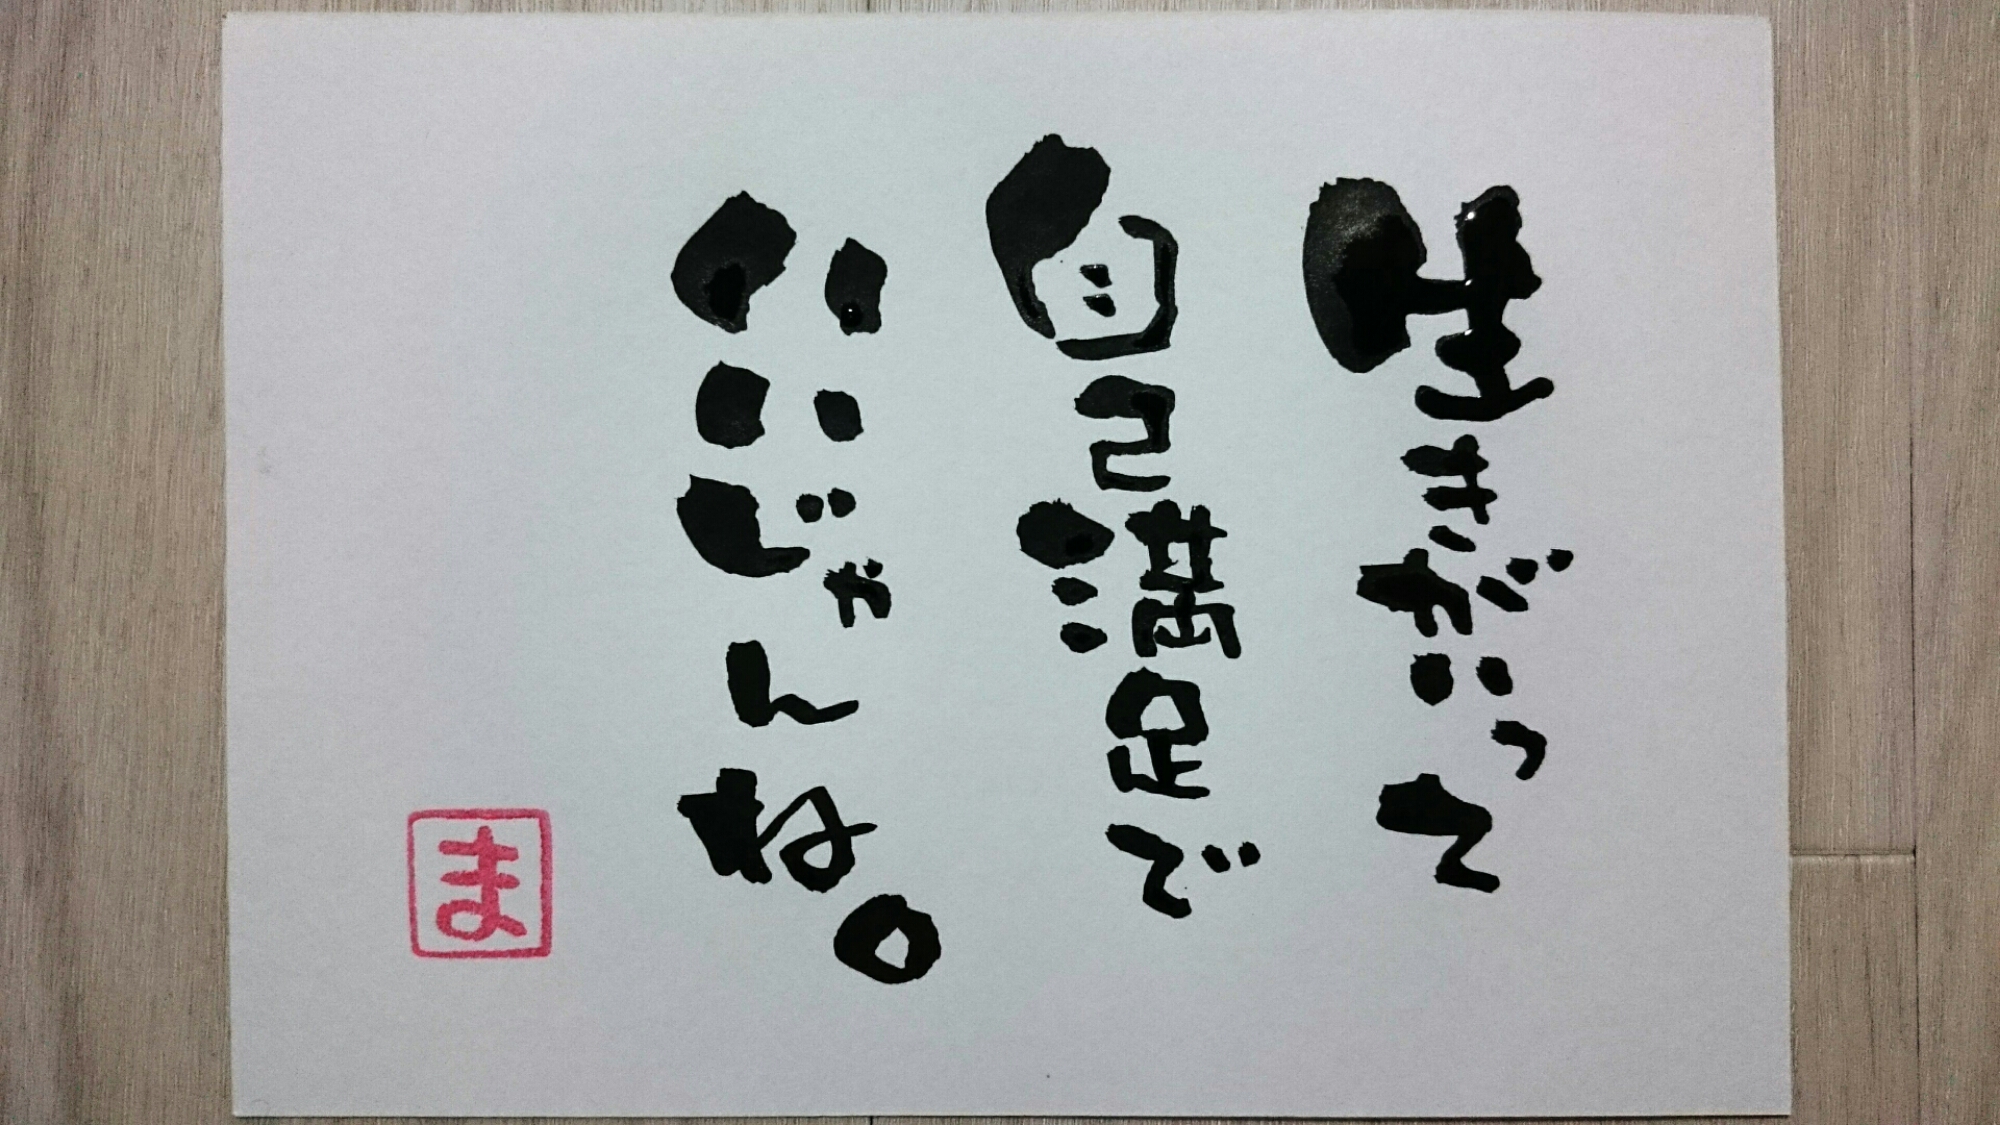 生きがいって
自己満足で
いいじゃんね。
ま